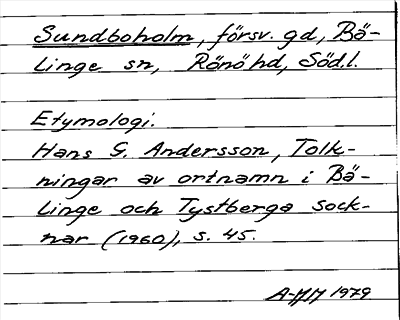 Sundboholm, försv. gd, Bä-
linge sn, Rönö hd, Södl.
Etymologi.
Hans G. Andersson, Tolk-
ningar av ortnamn i Bä-
linge och Tystberga sock-
nar (1960), s. 45.
A-MM 1979